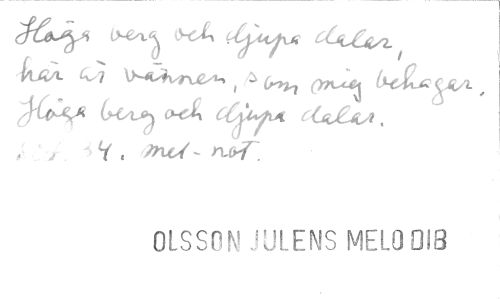 Höga berg och djupa dalar,
här är vännen, som mig behagar.
Höga berg och djupa dalar.
34. mel-not.
OLSSON JULENS MELODIB